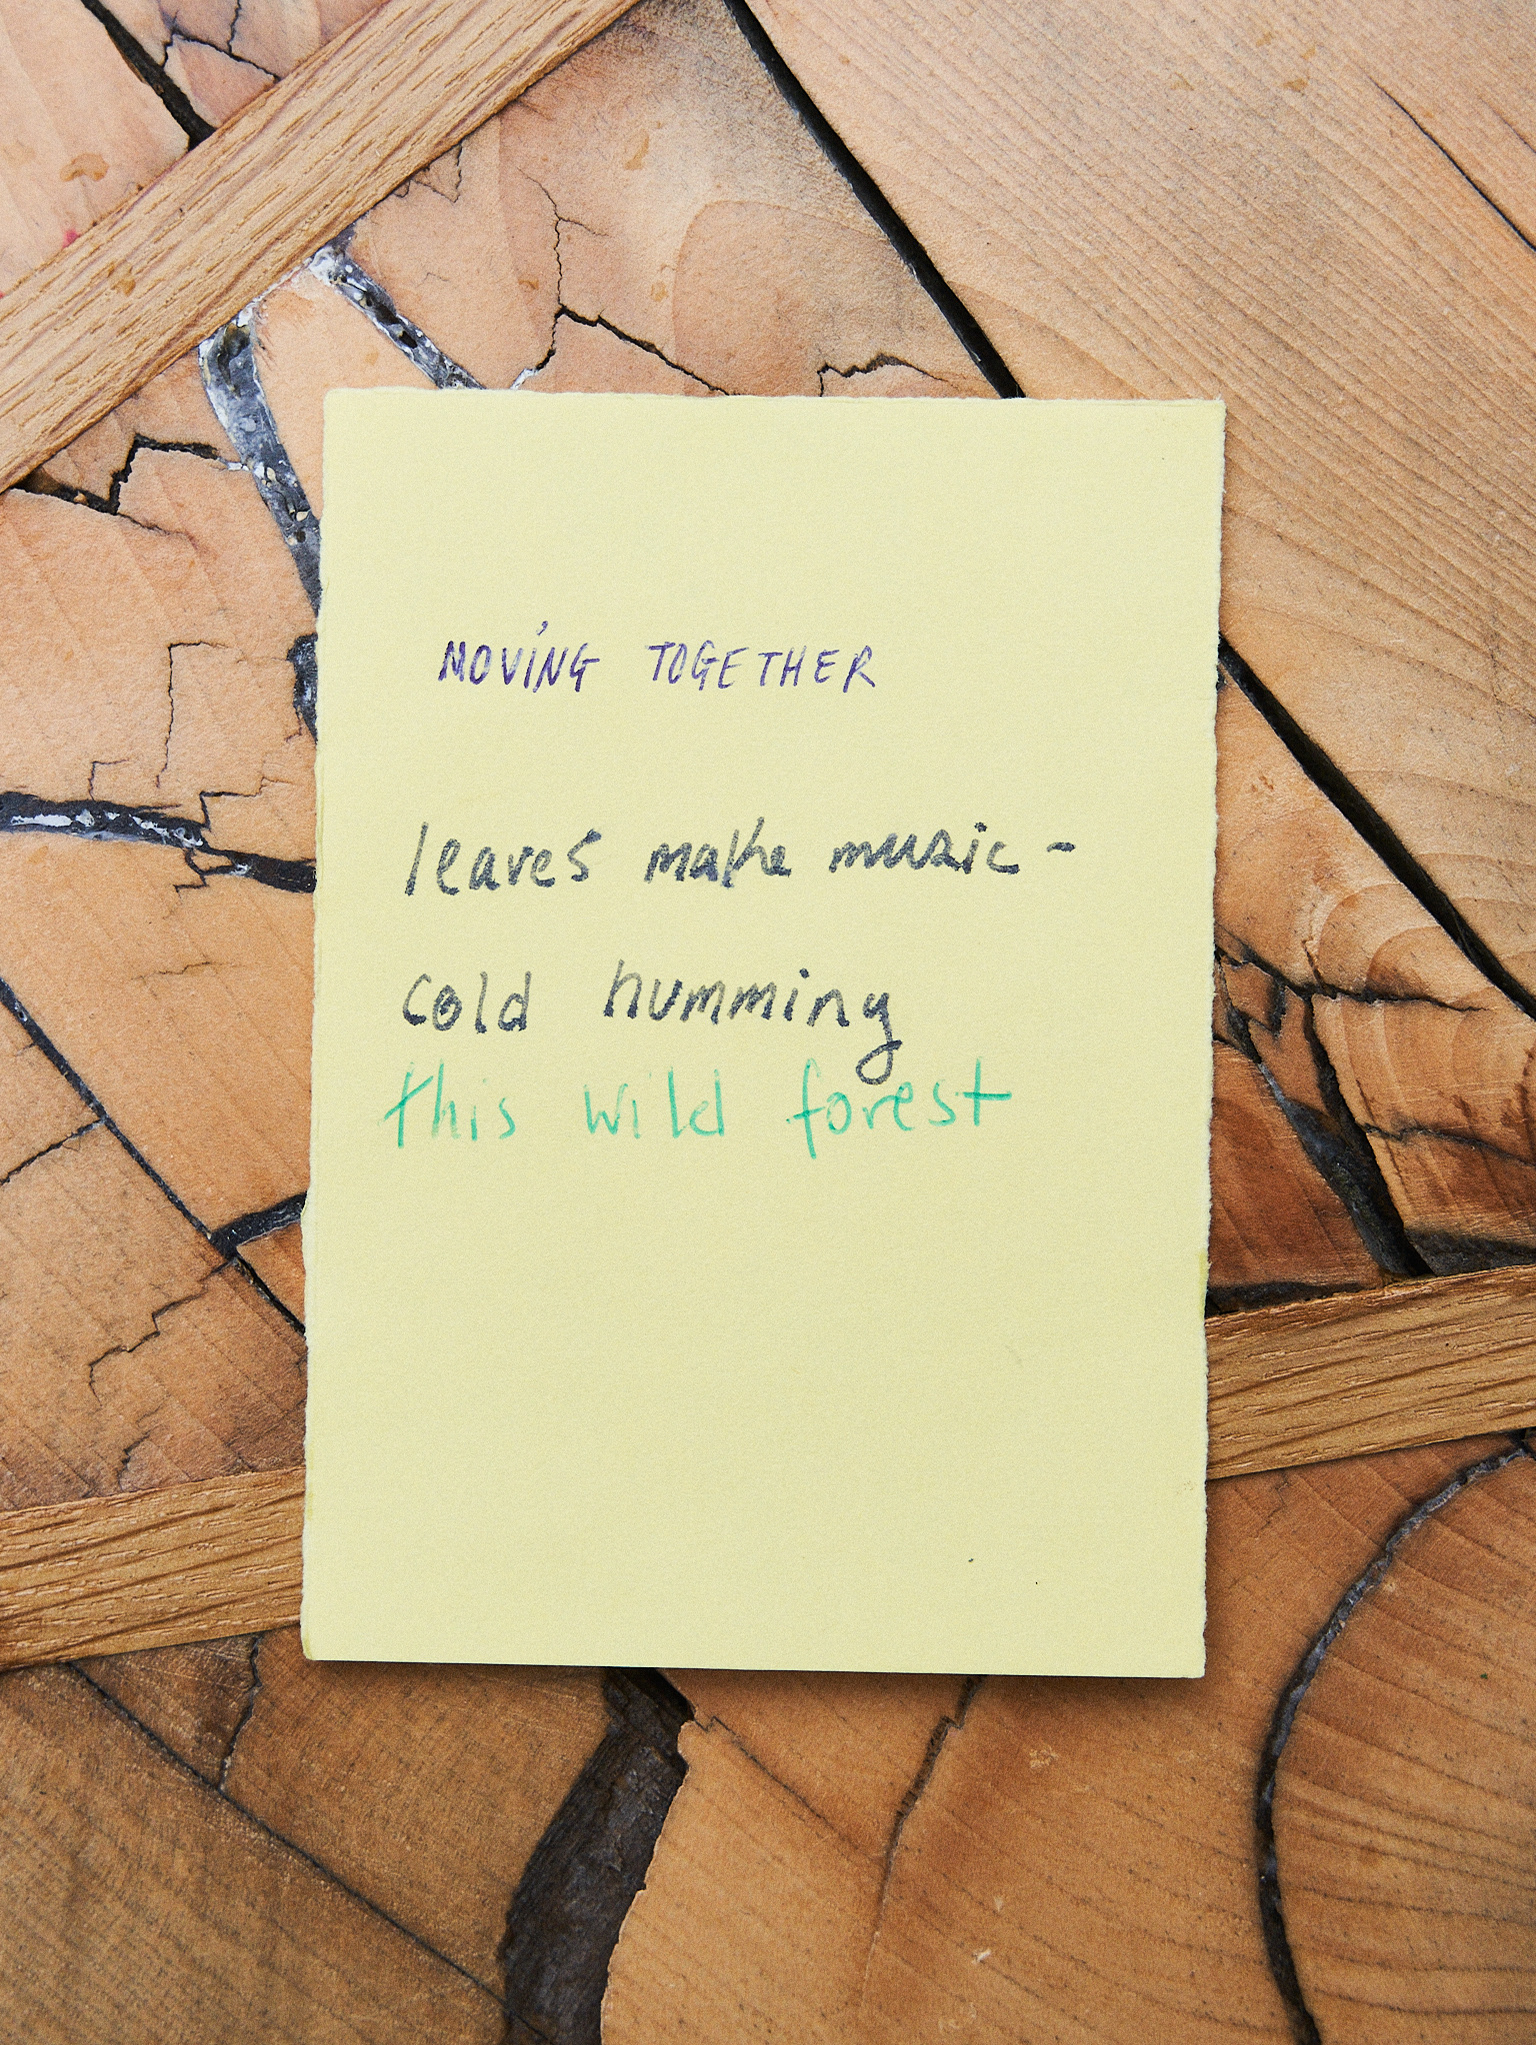 MOVING TOGETHER
leaves make music -
cold humming
this wild forest